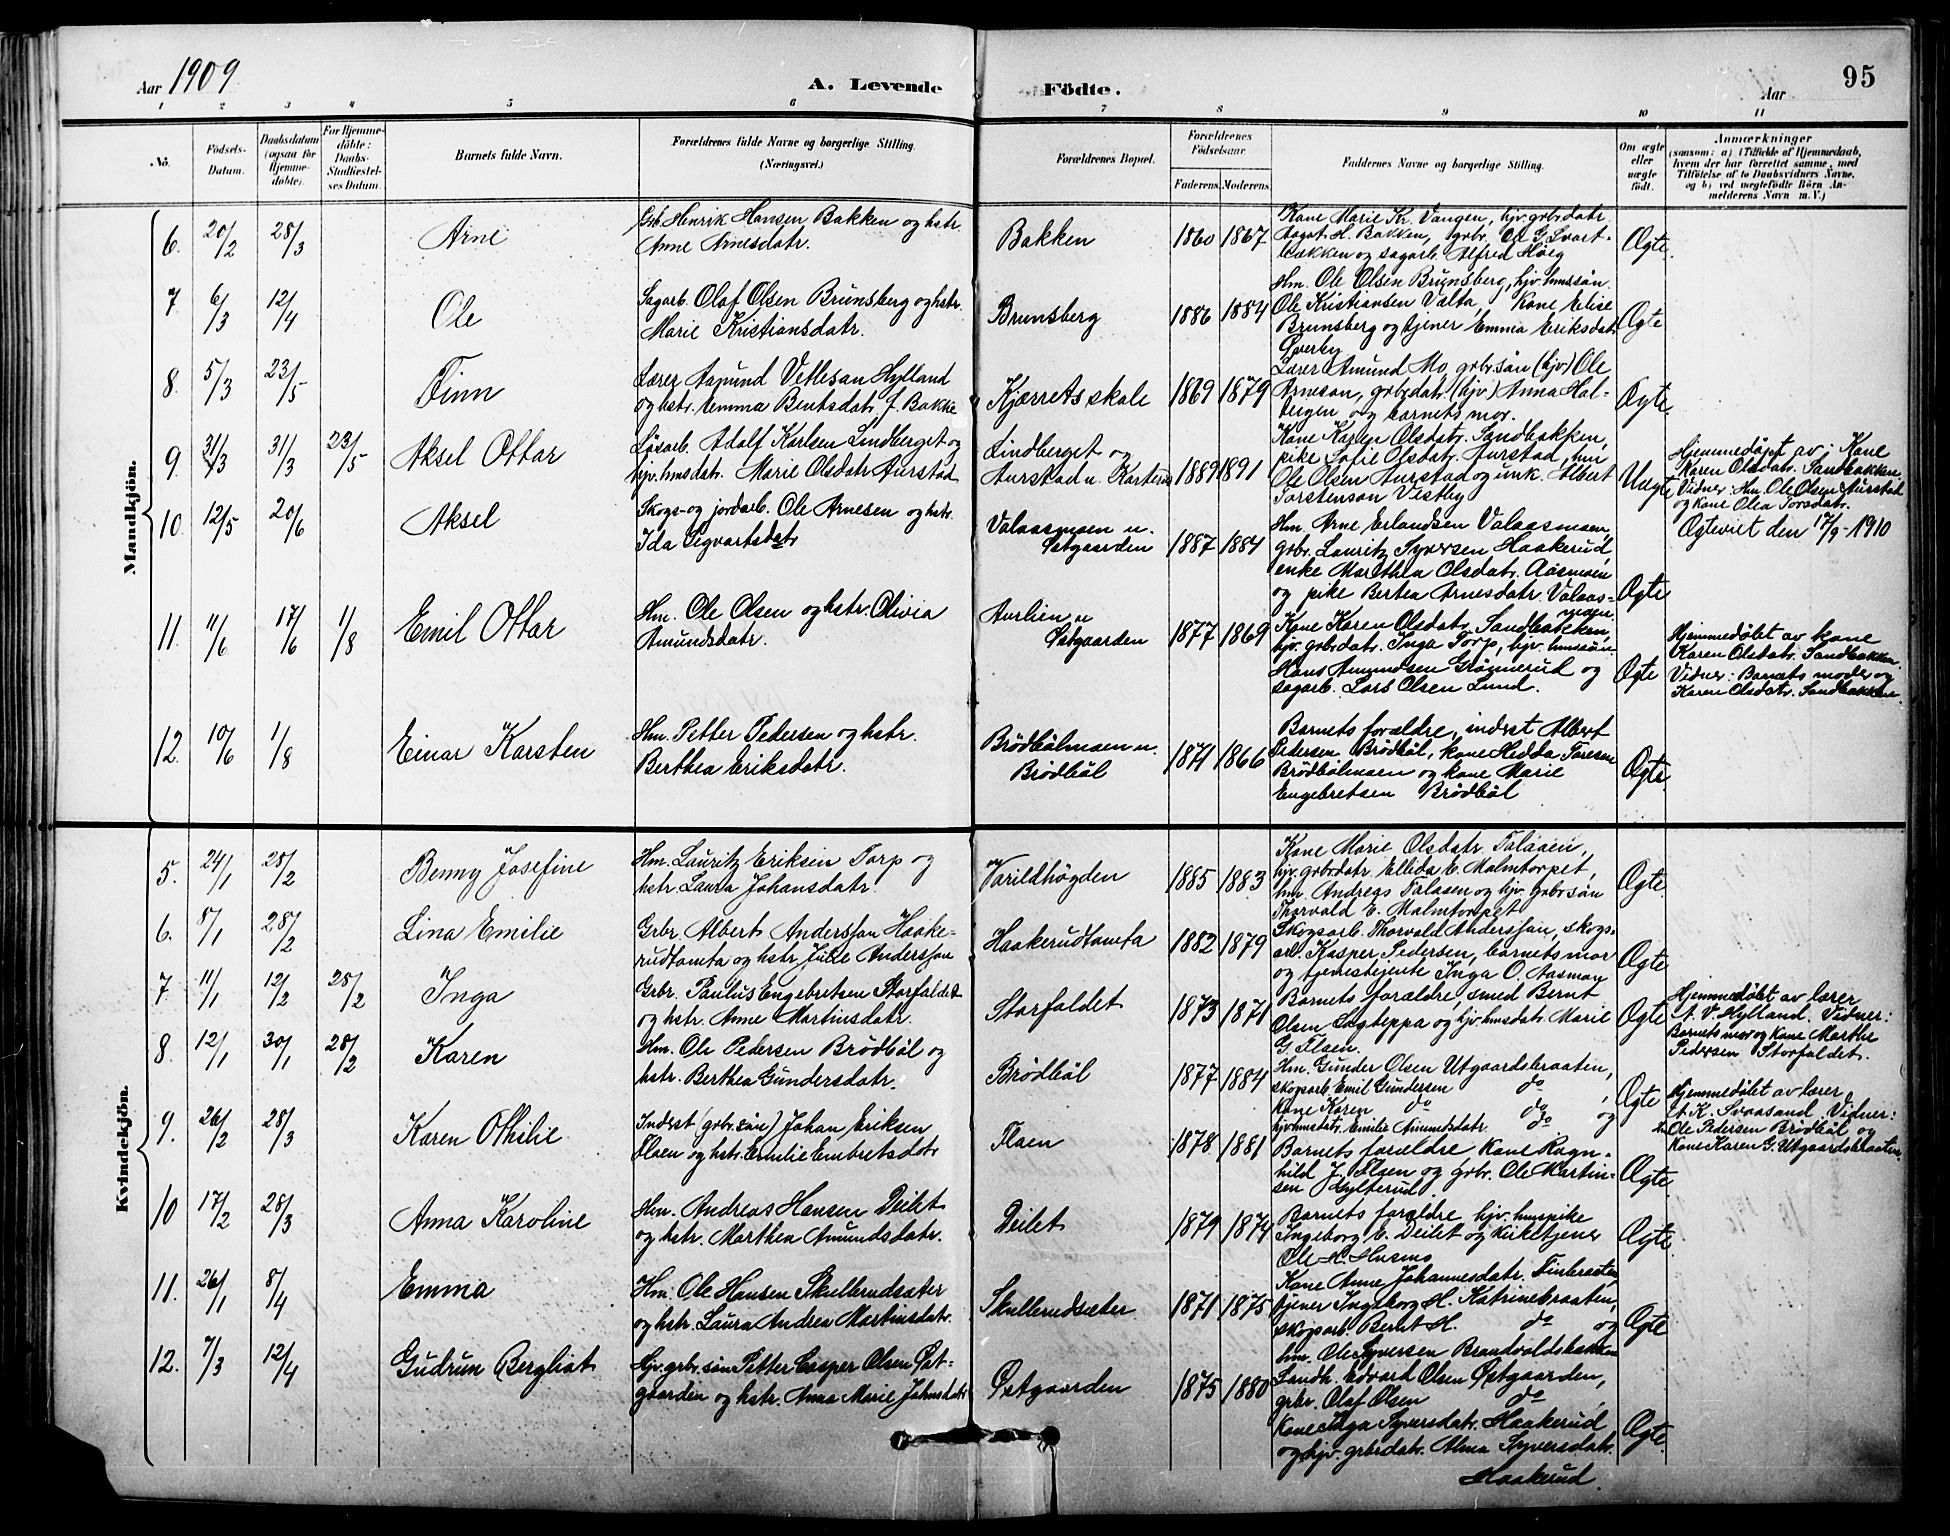 Aar 1909
A. Levende
Födte.
Aar
95
1 2 3 4 5 6 7 8 9 10 11
No.
Födsels-
Datum.
Daabsdatum
(ogsaa for
Hjemme-
döbte).
For Hjemme-
döbte:
Daabs-
Stadfæstel-
ses Datum.
Barnets fulde Navn.
Forældrenes fulde Navne og borgerlige Stilling.
(Næringsvei.)
Forældrenes Bopæl.
Forældrenes
Födselsaar.
Faderens.
Moderens.
Faddernes Navne og borgerlige Stilling.
Om ægte
eller
uægte
födt.
Anmærkninger
(saasom: a) i Tilfælde af Hjemmedaab,
hvem der har forrettet samme, med
Tilföielse af to Daabsvidners Navne,
og b) ved uægtefödte Börn An-
melderens Navn m. V.)
Mandkjön.
6. 20/2 28/3 Arne
Grb. Henrik Hansen Bakken og hstr.
Anne Arnesdatr.
Bakken 1860 1867
Kone Marie Kr. Vangen, hjv. grbr.datr.
Aagot H. Bakken, grbr. Ole G. Svart-
bakken og sagarb. Alfred Høig
Ægte.
7 6/3 12/4 Ole
Sagarb. Olaf Olsen Brunsberg og hstr.
Marie Kristiansdatr.
Brunsberg 1886 1884
Hm. Ole Olsen Brunsberg, hjv. hmssøn
Ole Kristiansen Valta, kone Elise
Brunsberg og tjener Emma Eriksdatr.
Överby
Ægte
8. 5/3 23/5 Finn
Lærer Aamund Vetlesøn Hylland
og hstr. Emma Berntsdatr. f. Bakke
Kjærrets skole 1869 1879
Lærer Amund Mo, grbr.søn (hjv) Ole
Arnesøn, grbr.datr. (hjv) Anna Hal-
bergen og barnets mor.
Ægte
9. 31/3 31/3 23/5 Aksel Ottar
Løsarb. Adolf Karlsen Lindberget og
hjv. hmsdatr. Marie Olsdatr. Aurstad
Lindberget og
Aurstad u. Karterud 1889 1891
Kone Karen Olsdatr. Sandbakken,
pike Sofie Olsdatr. Aurstad, hm
Ole Olsen Aurstad og unk. Albert
Torstenson Vestby
Uægte
Hjemmedøpt av; Kone
Karen Olsdatr. Sandbakken
Vidner: Hm. Ole Olsen Aurstad
og kone Olea Torsdatr.
Ægteviet den 17/9 - 1910
10. 12/5 20/6 Aksel
Skogs- og jordarb. Ole Arnesen og hstr.
Ida Sigvartsdatr
Valaasmoen u.
Østgaarden 1887 1884
Hm. Arne Erlandsen Valaasmoen,
grbr. Lauritz Syversen Haakerud,
enke Marthea Olsdatr. Aasmoen
og pike Berthea Arnesdatr. Valaas-
moen.
Ægte
11. 11/6 17/6 1/8 Emil Ottar
Hm. Ole Olsen og hstr. Olivia
Amundsdatr.
Aurlien u
Østgaarden 1877 1869
Kone Karen Olsdatr. Sandbakken,
hjv. grbr.datr. Inga Torp, hjv. hmssøn
Hans Amundsen Grønnerud og
sagarb. Lars Olsen Lund.
Ægte
Hjemmedøbt av kone
Karen Olsdatr. Sandbakken.
Vidner: Barnets moder og
Karen Olsdatr. Sandbakken
12. 10/6 1/8 Einar Karsten
Hm. Petter Pedersen og hstr.
Berthea Eriksdatr.
Brödbölmoen u.
Brödböl 1871 1866
Barnets forældre, inderst Albert
Pedersen Brödböl, kone Hedda Toresen
Brödbölmoen og kone Marie
Engebretsen Brödböl
Ægte
Kvindekjön.
5. 24/1 28/2 Benny Josefine
Hm. Lauritz Eriksen Torp og
hstr. Laura Johansdatr.
Varildhøgden 1885 1883
Kone Marie Olsdatr. Talaaen,
hjv. grbrdatr. Ellida E. Malmtorpet,
hm. Andreas Talasen og hjv. grbrsøn
Thorvald E. Malmtorpet
Ægte
6. 8/1 28/2 Lina Emilie
Grbr. Albert Anderssøn Haake-
rudtomta og hstr. Julie Anderssøn
Haakerudtomta 1882 1879
Skogsarb. Thorvald Anderssøn, skogs-
arb. Kasper Pedersen, barnets mor
og tjenestejente Inga O. Aasmoen
Ægte
7 11/1 12/2 28/2 Inga
Grbr. Paulus Engebretsen Storfaldet
og hstr. Anne Martinsdatr.
Storfaldet 1873 1871
Barnets forældre, smed Bernt
Olsen Lögteppa og hjv. hmsdatr. Marie
G. Flaen.
Ægte
Hjemmedøbt av lærer
A. V. Hylland. Vidner:
Barnets mor og kone Marthe
Pedersen Storfaldet.
8. 12/1 30/1 28/2 Karen
Hm. Ole Pedersen Brödböl og
hstr. Berthea Gundersdatr.
Brödböl 1877 1884
Hm. Gunder Olsen Utgaardsbraaten,
skogsarb. Emil Gundersen do ,
Kone Karen do do og
hjv hmsdatr. Emilie Amundsdatr. do
Ægte
Hjemmedøbt av lærer
A. K. Svaasand. Vidner:
Ole Pedersen Brödböl og
kone Karen G. Utgaardsbraaten.
9. 26/2 28/3 Karen Othilie
Inderst (grbr.søn) Johan Eriksen
Flaen og hstr. Emilie Embretsdatr
Flaen 1878 1881
Barnets forældre kone Ragn-
hild J. Flaen og grbr. Ole Martin-
sen Hylterud.
Ægte
10 17/2 28/3 Anna Karoline
Hm. Andreas Hansen Deilet
og hstr. Marthea Amundsdatr.
Deilet 1879 1874
Barnets forældre hjv. hmspike
Ingeborg E. Deilet og kirketjener
Ole H. Husmo
Ægte
11. 26/1 8/4 Emma
Hm. Ole Hansen Skullerudsæter
og hstr. Laura Andrea Martinsdatr.
Skullerudsæter 1871 1875
Kone Anne Johannesdatr. Finbraaten,
tjener Ingeborg H. Katrinebraaten,
skogsarb. Bernt H. do og
hm. Ole Syversen Brandvoldsbakken
Ægte
12. 7/3 12/4 Gudrun Bergliot
Hjv. grbr.søn Petter Casper Olsen Øst-
gaarden og hstr. Anna Marie Johnsdatr
Østgaarden 1875 1880
Landh. Edvard Olsen Østgaarden,
grbr. Olaf Olsen do ,
kone Inga Syversdatr. Haakerud
og hjv. grbrdatr. Alma Syversdatr.
Haakerud.
Ægte